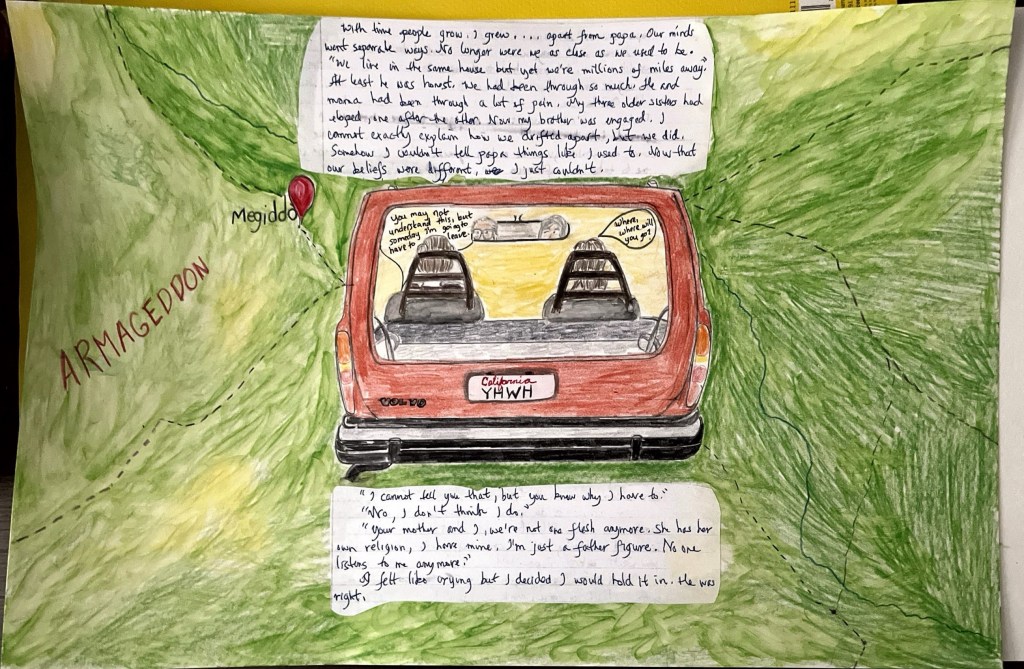 With time people grow. I grew.... apart from papa. Our minds
went separate ways. No longer were we as close as we used to be.
"We live in the same house but yet we're millions of miles away."
At least he was honest. We had been through so much. He and
mama had been through a lot of pain. My three older sisters had
eloped, one after the other. Now my brother was engaged. I
cannot exactly explain how we drifted apart, but we did.
Somehow I couldn't tell papa things like I used to. Now that
our beliefs were different, I just couldn't.
Megiddo
ARMAGEDDON
You may not
understand this, but
someday I'm going to
have to leave.
Where,
where will
you go?
California
YHWH
VOLVO
"I cannot tell you that, but you know why I have to."
"No, I don't think I do."
"Your mother and I, we're not one flesh anymore. She has her
own religion, I have mine. I'm just a father figure. No one
listens to me anymore."
I felt like crying but I decided I would hold it in. He was
right.